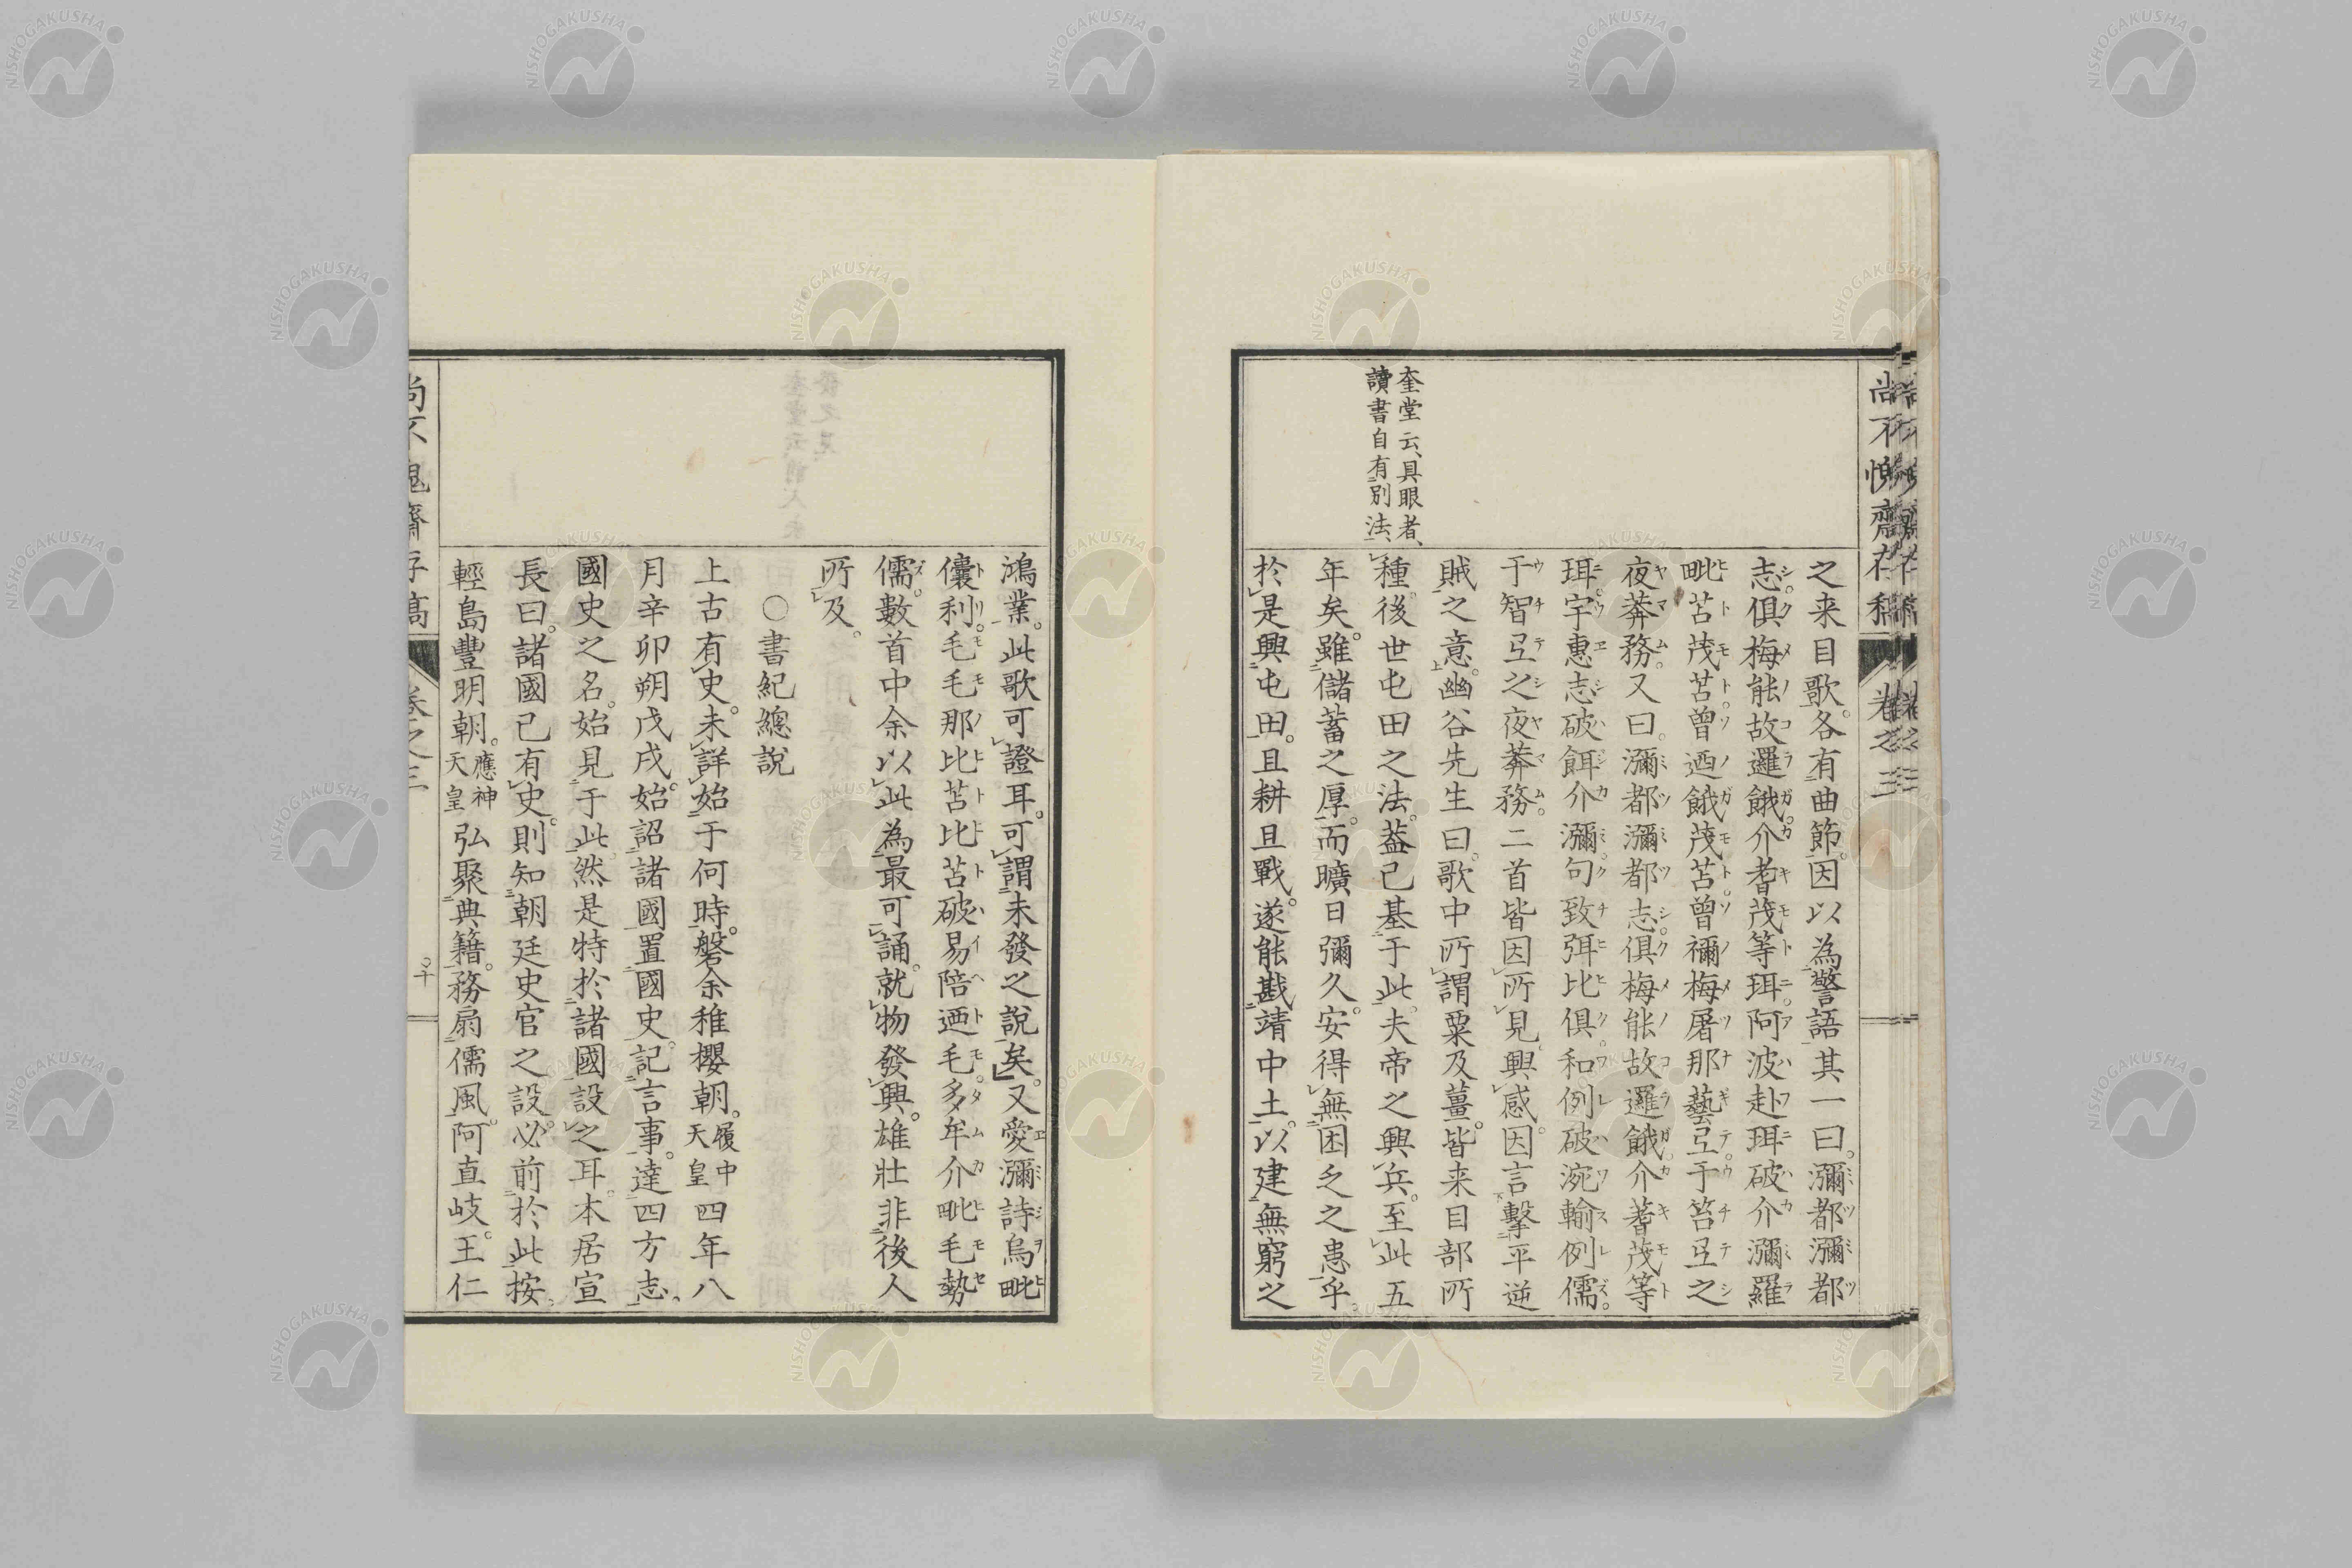 尚不愧齋存稿 卷之三
奎堂云、具眼者、
讀書自有別法、
之来目歌。各有曲節。因以為警語。其一曰。瀰都瀰都
志。俱梅能故邏餓。介耆茂等珥。阿波赴珥破介瀰羅
毗苫茂苫。曾廼餓茂苫。曾禰梅屠那藝弖。于笞弖之
夜莽務。又曰。瀰都瀰都志。俱梅能故邏餓。介耆茂等
珥。宇惠志破餌介瀰。句致弭比俱。和例破涴輸例儒。
于智弖之夜莽務。二首皆因所見興感。因言擊平逆
賊之意。幽谷先生曰。歌中所謂粟及薑。皆来目部所
種。後世屯田之法。葢已基于此。夫帝之興兵。至此五
年矣。雖儲蓄之厚。而曠日彌久。安得無困乏之患乎。
於是興屯田。且耕且戰。遂能戡靖中土。以建無窮之
鴻業。此歌可證耳。可謂未發之說矣。又愛瀰詩烏毗
儾利。毛毛那比苫比苫破易陪廼毛。多牟介毗毛勢
儒。數首中余以此為最可誦。就物發興。雄壯非後人
所及。
○書紀總說
上古有史。未詳始于何時。磐余稚櫻朝。履中天皇四年八
月辛卯朔戊戌。始詔諸國置國史。記言事。達四方志。
國史之名。始見于此。然是特於諸國設之耳。本居宣
長曰。諸國已有史。則知朝廷史官之設。必前於此。按
輕島豐明朝。應神天皇弘聚典籍。務扇儒風。阿直岐。王仁
尚不愧齋存稿 卷之三 十